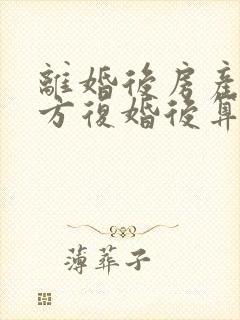 離婚後房產
方復婚後算
薄葬子